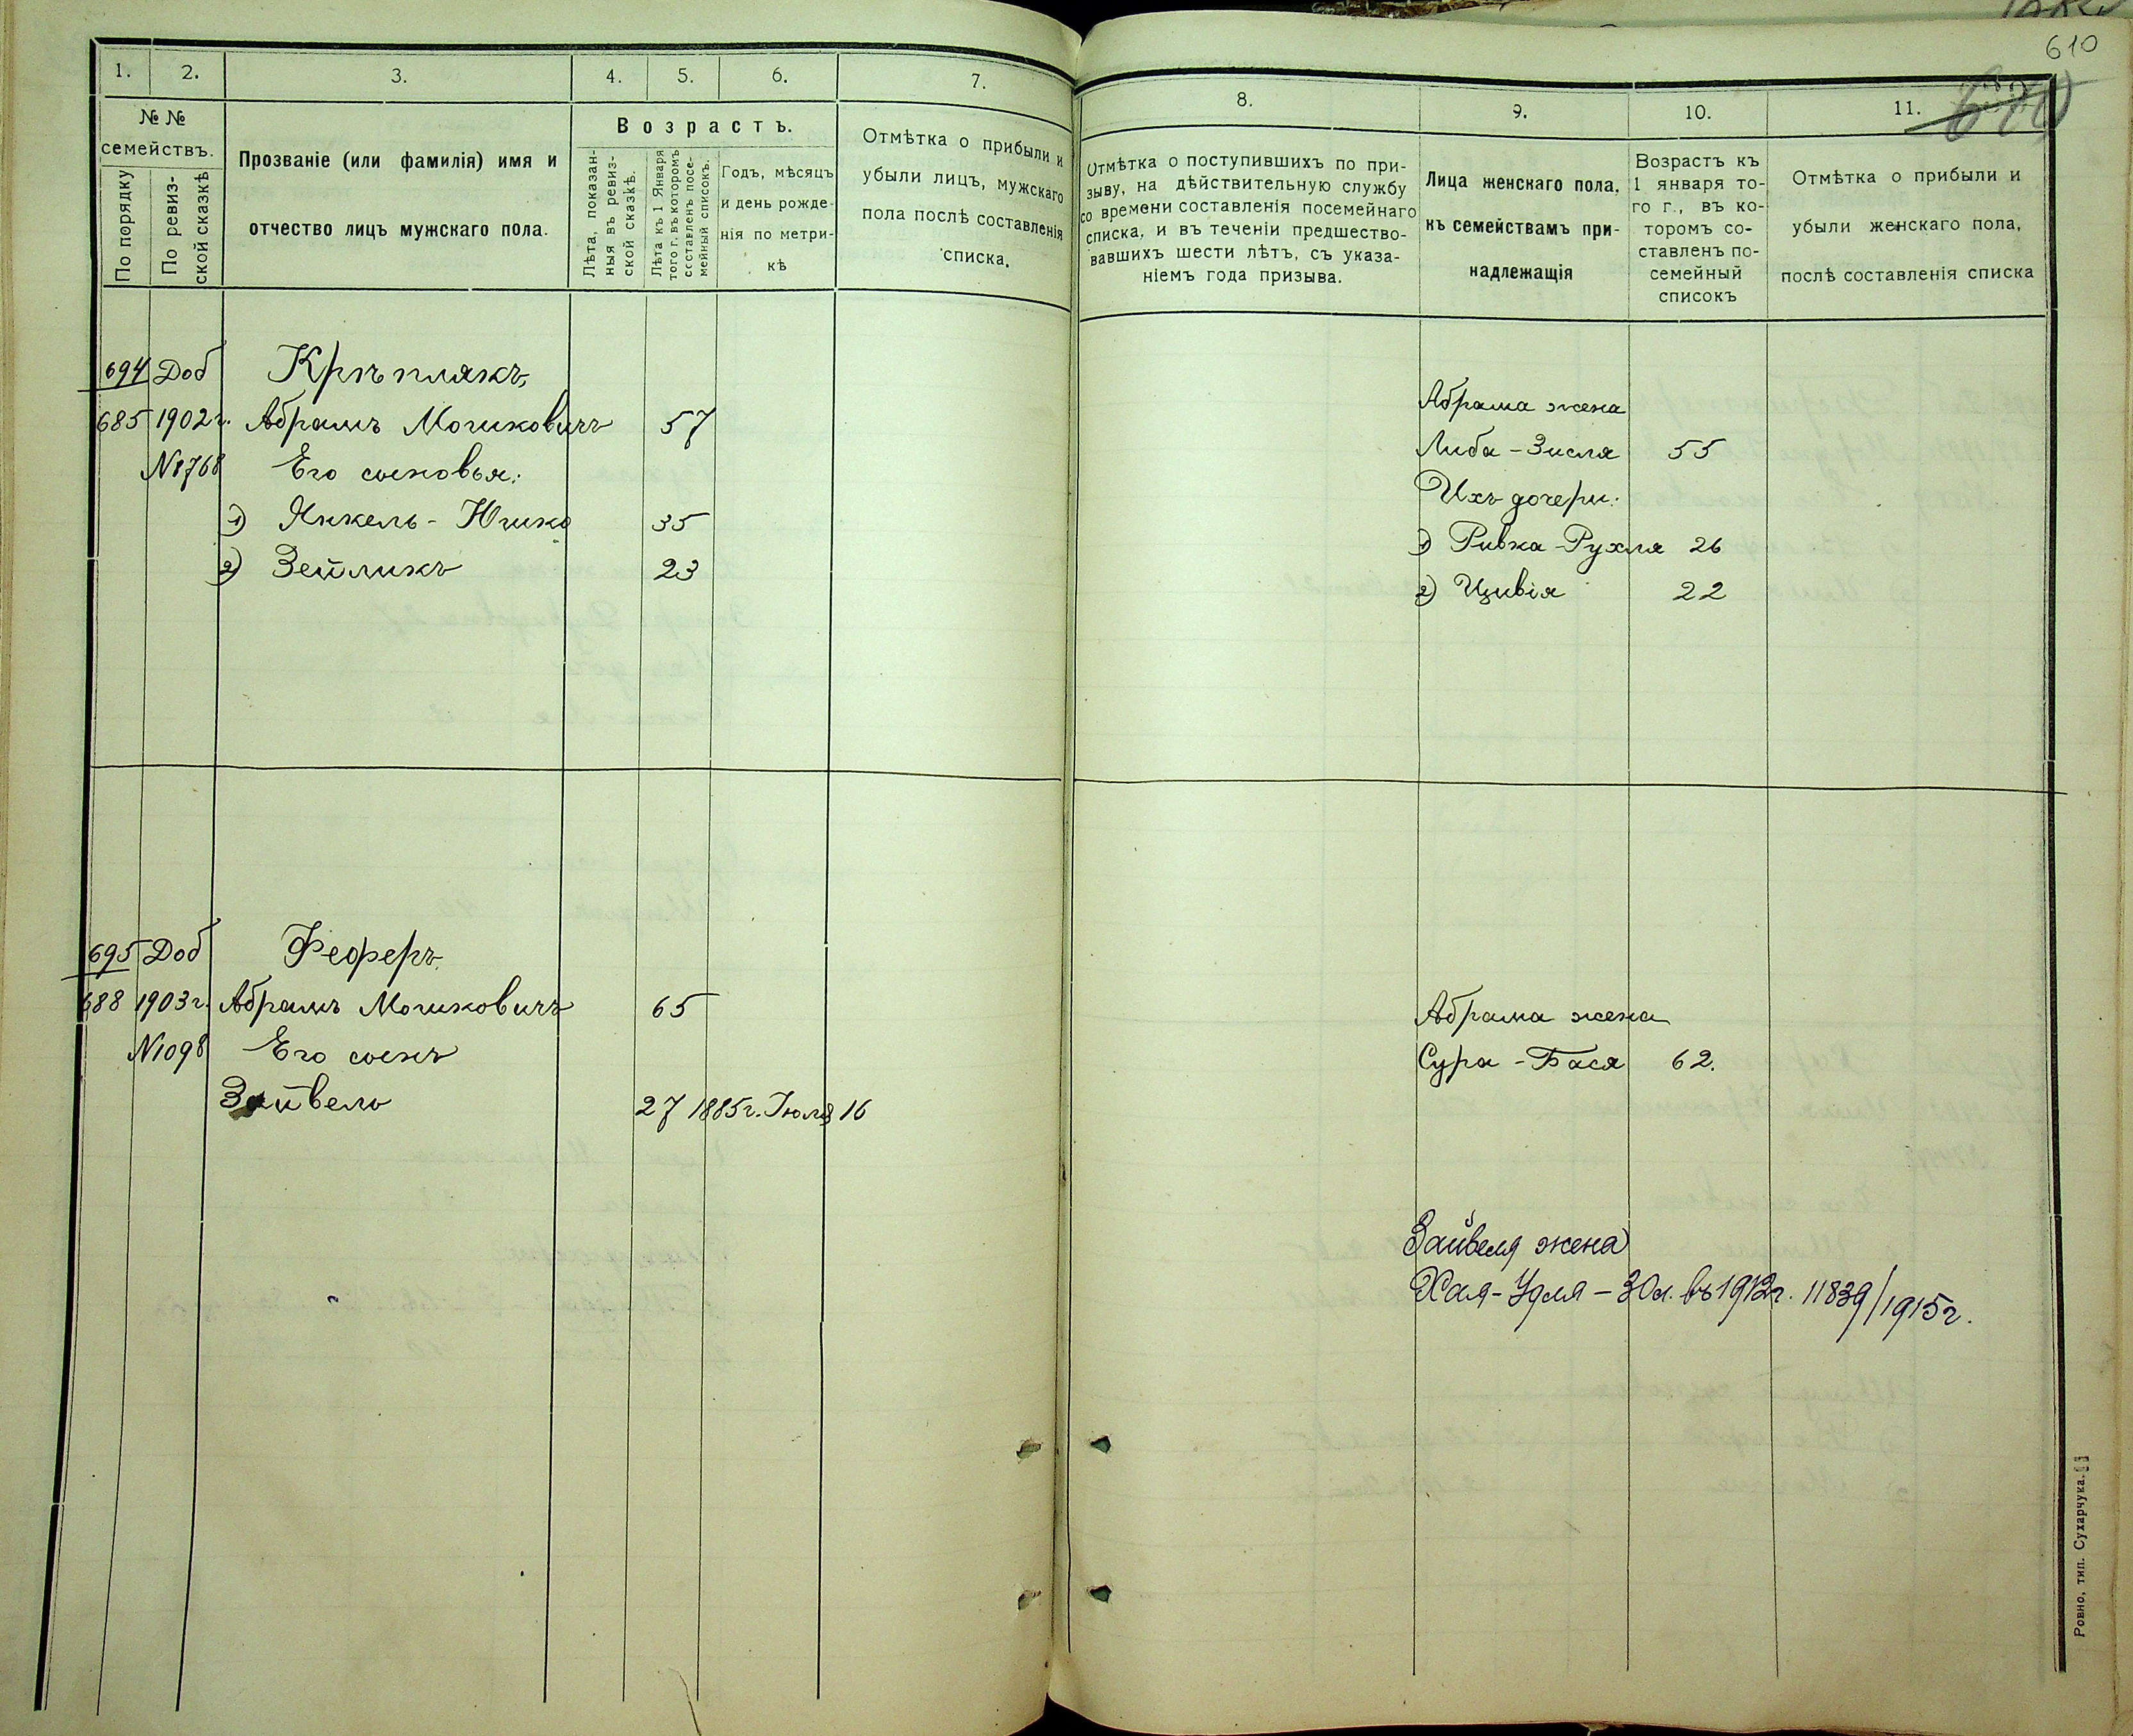 610
1.
2.
3.
4.
5.
6.
7.
№ №
семействъ.
По порядку
По ревиз-
ской сказкѣ
Прозваніе (или фамилія) имя и
отчество лицъ мужскаго пола.
Возрастъ.
Лѣта, показан-
ныя въ ревиз-
ской сказкѣ.
Лѣта къ 1 Января
того г. въ которомъ
составленъ посе-
мейный списокъ.
Годъ, мѣсяцъ
и день рожде-
нія по метри-
кѣ
Отмѣтка о прибыли и
убыли лицъ, мужскаго
пола послѣ составленія
списка.
694 Доб Крѣплякъ,
685 1902 г. Абрамъ Мошковичъ 57
№1768 Его сыновья:
1) Янкель-Юшко 35
2) Зейликъ 23
695 Доб Феферъ.
688 1903 г. Абрамъ Мошковичъ 65
№1098 Его сынъ
Зайвель 27 1885 г. Іюля 16
8.
9.
10.
11.
Отмѣтка о поступившихъ по при-
зыву, на дѣйствительную службу
со времени составленія посемейнаго
списка, и въ теченіи предшество-
вавшихъ шести лѣтъ, съ указа-
ніемъ года призыва.
Лица женскаго пола,
къ семействамъ при-
надлежащія
Возрастъ къ
1 января то-
го г., въ ко-
торомъ со-
ставленъ по-
семейный
списокъ
Отмѣтка о прибыли и
убыли женскаго пола,
послѣ составленія списка
Абрама жена
Либа-Зисля 55
Ихъ дочери:
1) Ривка-Рухля 26
2) Цивія 22
Абрама жена
Сура-Бася 62.
Зайвеля жена
Хая-Удля - 30 л. въ 1912 г. 11839/1915 г.
Ровно, тип. Сухарчука.